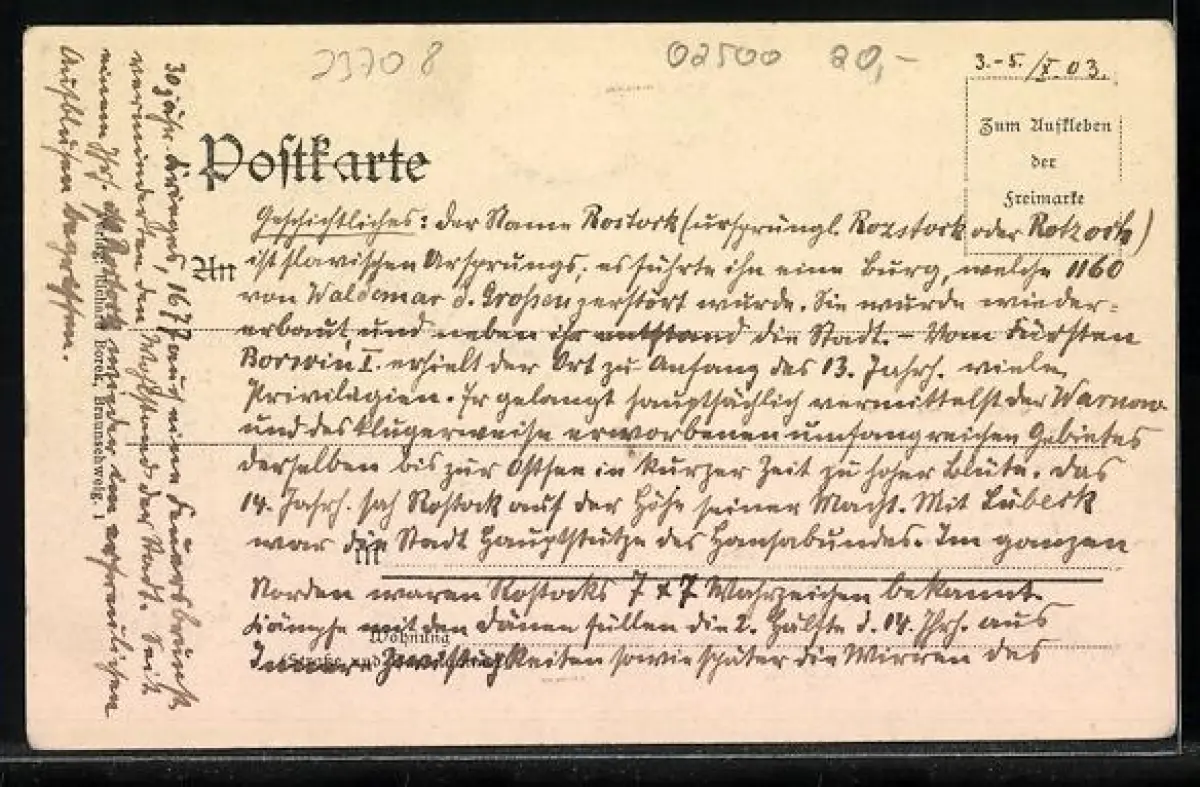 23708
02500 20,-
3.-5./X.03.
Zum Aufkleben
der
Freimarke
Postkarte
An
In
Wohnung
Geschichtliches: Der Name Rostock (ursprüngl. Rozstock oder Rotzock)
ist slavischen Ursprungs; es führte ihn eine Burg, welche 1160
von Waldemar d. Großen zerstört wurde. Sie wurde wieder-
erbaut, und neben ihr entstand die Stadt. – Vom Fürsten
Borwin I. erhielt der Ort zu Anfang des 13. Jahrh. viele
Privilegien. Er gelangt hauptsächlich vermittelst der Warnow
und des klugerweise erworbenen umfangreichen Gebietes
derselben bis zur Ostsee in kurzer Zeit zu hoher Blüte. Das
14. Jahrh. sah Rostock auf der Höhe seiner Macht. Mit Lübeck
war die Stadt Hauptstütze des Hansabundes. Im ganzen
Norden waren Rostocks 7 x 7 Wahrzeichen bekannt.
Kämpfe mit den Dänen füllen die 2. Hälfte d. 14. Jhrh. aus
Innere Zwistigkeiten sowie später die Wirren des
30jähr. Krieges, 1677 auch eine Feuersbrunst
verminderten den Wohlstand der Stadt. Seit
einem Jhrh. ist Rostock wieder im erfreulichen
Aufblühen begriffen.
Verlag: Richard Borek, Braunschweig. 1